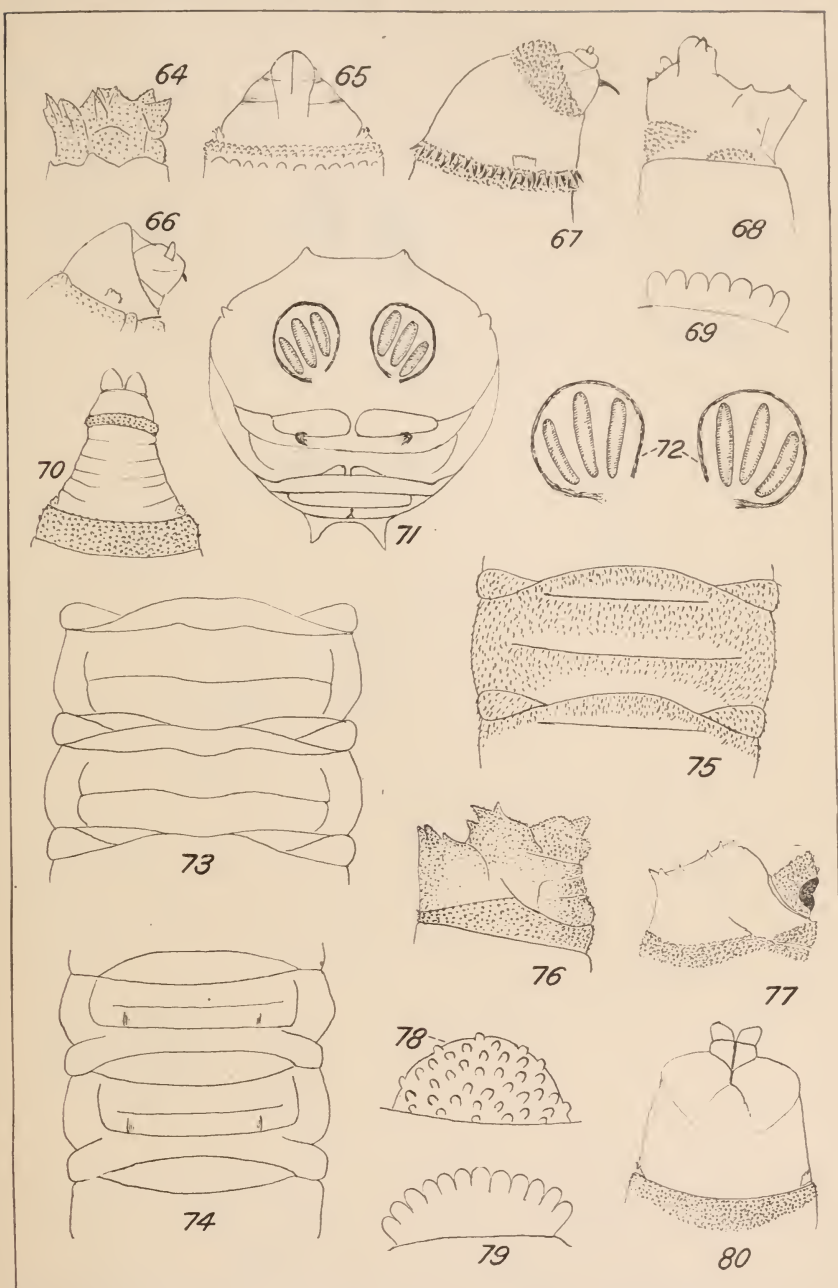 64
65
67
68
66
69
70
71
72
73
75
76
77
78
74
79
80